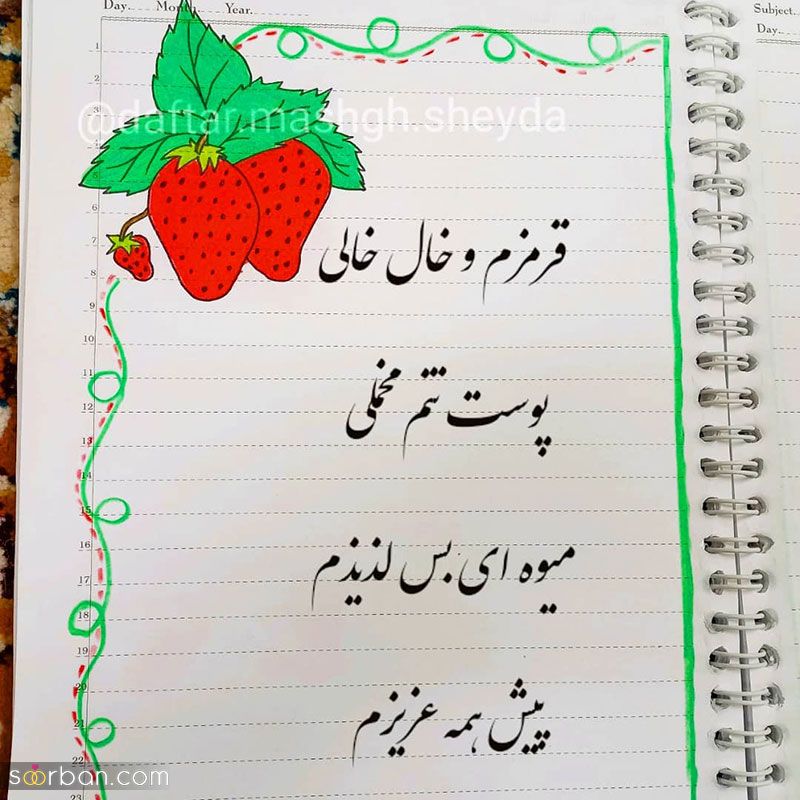 Day.... Month.... Year....
Subject.
Day..
@daftar.mashgh.sheyda
قرمزم و خال خالی
پوست تنم مخملی
میوه ای بس لذیذم
پیش همه عزیزم
1
3
4
6
7
8
9
10
11
12
13
14
15
16
17
18
19
20
21
22
23
soorban.com